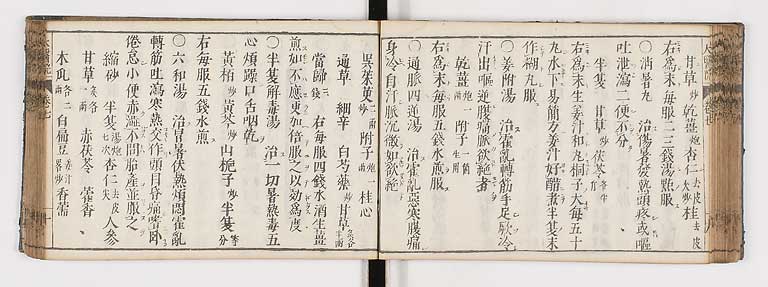 甘草炒 乾薑炮 杏仁去皮尖炒 桂去皮
右爲末每服二三錢湯㸃服
〇消暑丸 治傷暑發熱頭疼或嘔
吐泄瀉二便不分
半夏 甘草炒 茯苓
右爲末生薑汁和丸桐子大每五十
丸水下易簡方薑汁好醋煮半夏末
作糊丸服
〇姜附湯 治霍亂轉筋手足厥冷
汗出嘔逆腹痛脈欲絶者
乾薑一兩 附子一箇生用
右爲末每服五錢水煎服
〇通脈四逆湯 治霍亂惡寒腹痛
身冷自汗脈沉微如欲絶
吳茱萸二兩炒 附子炮一兩 桂心
通草 細辛 白芍藥炒 甘草炙各半兩
當歸三錢 右每服四錢水酒生薑
煎如不應更加倍服之以効爲度
〇半夏解毒湯 治一切暑熱毒五
心煩躁口舌咽乾
黃栢炒 黃芩炒 山梔子炒 半夏等分
右每服五錢水煎
〇六和湯 治冒暑伏熱煩悶霍亂
轉筋吐瀉寒熱交作頭目昏痛嗜卧
倦怠小便赤澁不問胎產並服之
縮砂 半夏湯炮七次 杏仁去皮尖 人參
甘草炙各一兩 赤茯苓 藿香
木瓜各二兩 白扁豆薑汁畧炒 香薷